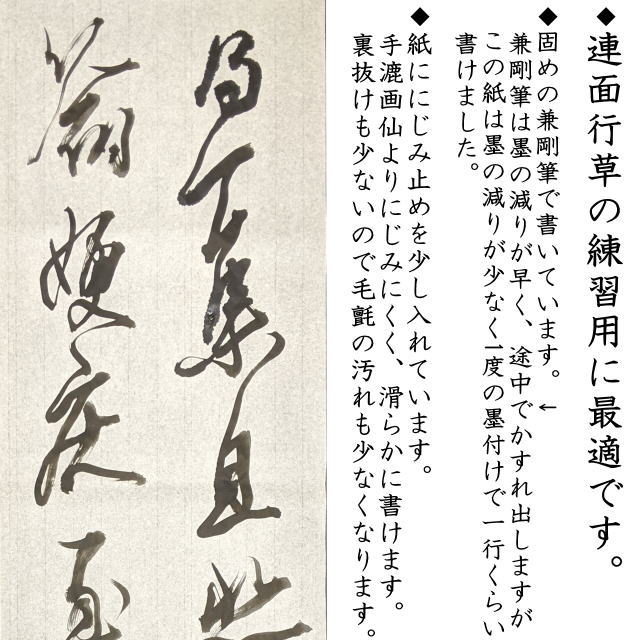 ◆連面行草の練習用に最適です。
◆固めの兼剛筆で書いています。←
兼剛筆は墨の減りが早く、途中でかすれ出しますが
この紙は墨の減りが少なく一度の墨付けで一行くらい
書けました。
◆紙ににじみ止めを少し入れています。
手漉画仙よりにじみにくく、滑らかに書けます。
裏抜けも少ないので毛氈の汚れも少なくなります。
集且